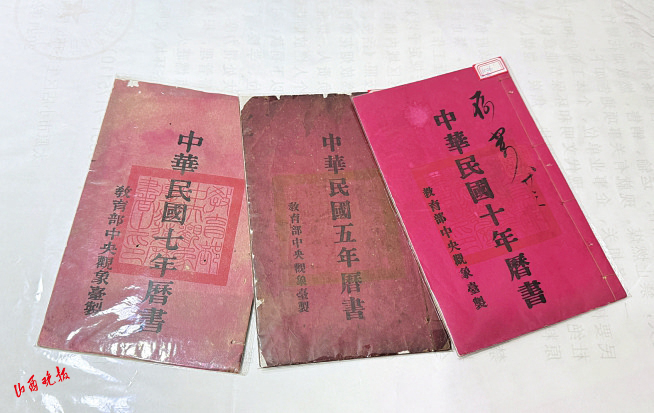 中華民國七年曆書
教育部中央觀象臺製
中華民國五年曆書
教育部中央觀象臺製
中華民國十年曆書
教育部中央觀象臺製
山西晚报